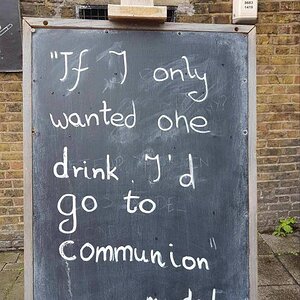 "If I only
wanted one
drink. I'd
go to
communion"